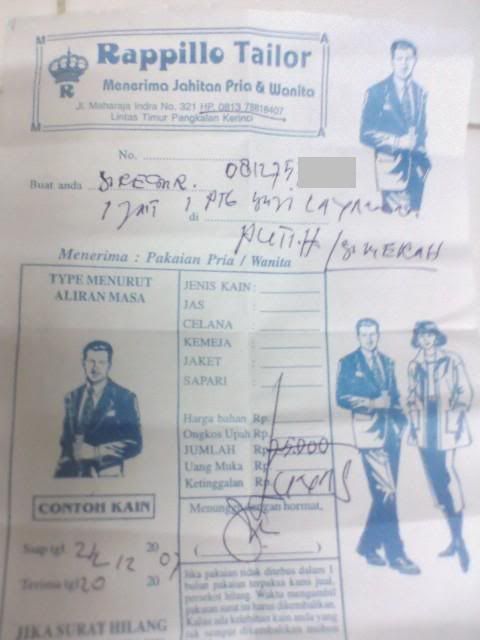 M A
R
Rappillo Tailor
Menerima Jahitan Pria & Wanita
Jl. Maharaja Indra No. 321 HP. 0813 78818407
Lintas Timur Pangkalan Kerinci
M A
No. 081275
Buat anda SIREGAR.
di
PUTIH / MERAH
Menerima : Pakaian Pria / Wanita
TYPE MENURUT
ALIRAN MASA
JENIS KAIN :
JAS :
CELANA :
KEMEJA :
JAKET :
SAPARI :
Harga bahan Rp.
Ongkos Upah Rp.
JUMLAH Rp. 75.000
Uang Muka Rp.
Ketinggalan Rp.
CONTOH KAIN
Menunggu dengan hormat,
( )
Siap tgl 2/2 12 20 07
Terima tgl 20 20
Jika pakaian tidak ditebus dalam 1
bulan pakaian terpaksa kami jual,
persekot hilang. Waktu mengambil
pakaian surat ini harus dikembalikan.
Kalau ada kelebihan kain anda yang
tak sempat dikembalikan
JIKA SURAT HILANG